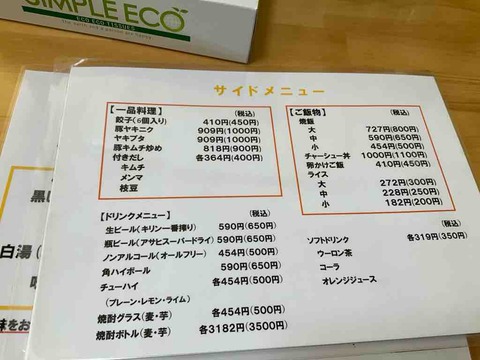 SIMPLE ECO
ECO ECO TISSUES
サイドメニュー
【一品料理】 (税込)
餃子(6個入り) 410円(450円)
豚ヤキニク 909円(1000円)
ヤキブタ 909円(1000円)
豚キムチ炒め 818円(900円)
付きだし 各364円(400円)
キムチ
メンマ
枝豆
【ご飯物】 (税込)
焼飯
大 727円(800円)
中 590円(650円)
小 454円(500円)
チャーシュー丼 1000円(1100円)
卵かけご飯 410円(450円)
ライス
大 272円(300円)
中 228円(250円)
小 182円(200円)
【ドリンクメニュー】 (税込)
生ビール(キリン一番搾り) 590円(650円)
瓶ビール(アサヒスーパードライ) 590円(650円)
ノンアルコール(オールフリー) 454円(500円)
角ハイボール 590円(650円)
チューハイ 各454円(500円)
(プレーン・レモン・ライム)
焼酎グラス(麦・芋) 各454円(500円)
焼酎ボトル(麦・芋) 各3182円(3500円)
(税込)
ソフトドリンク 各319円(350円)
ウーロン茶
コーラ
オレンジジュース
黒
白湯(
味をお